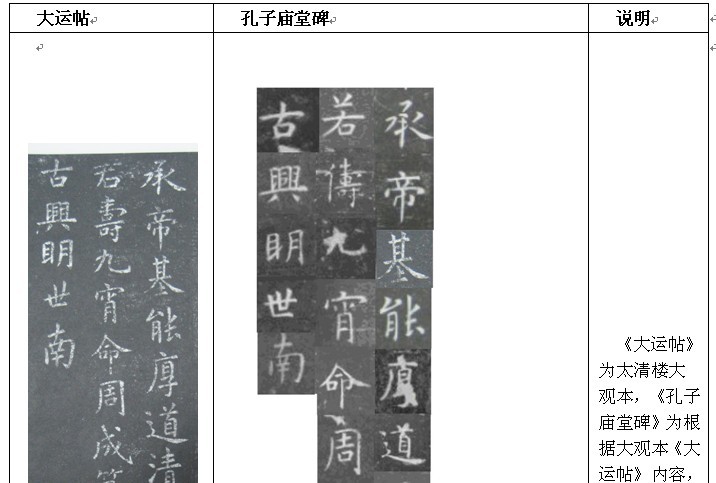 大运帖
孔子庙堂碑
说明
承帝基能厚道清
若壽九宵命周成
古興明世南
承帝基能厚道
若儔九宵命周
古興明世南
《大运帖》
为太清楼大
观本，《孔子
庙堂碑》为根
据大观本《大
运帖》内容，